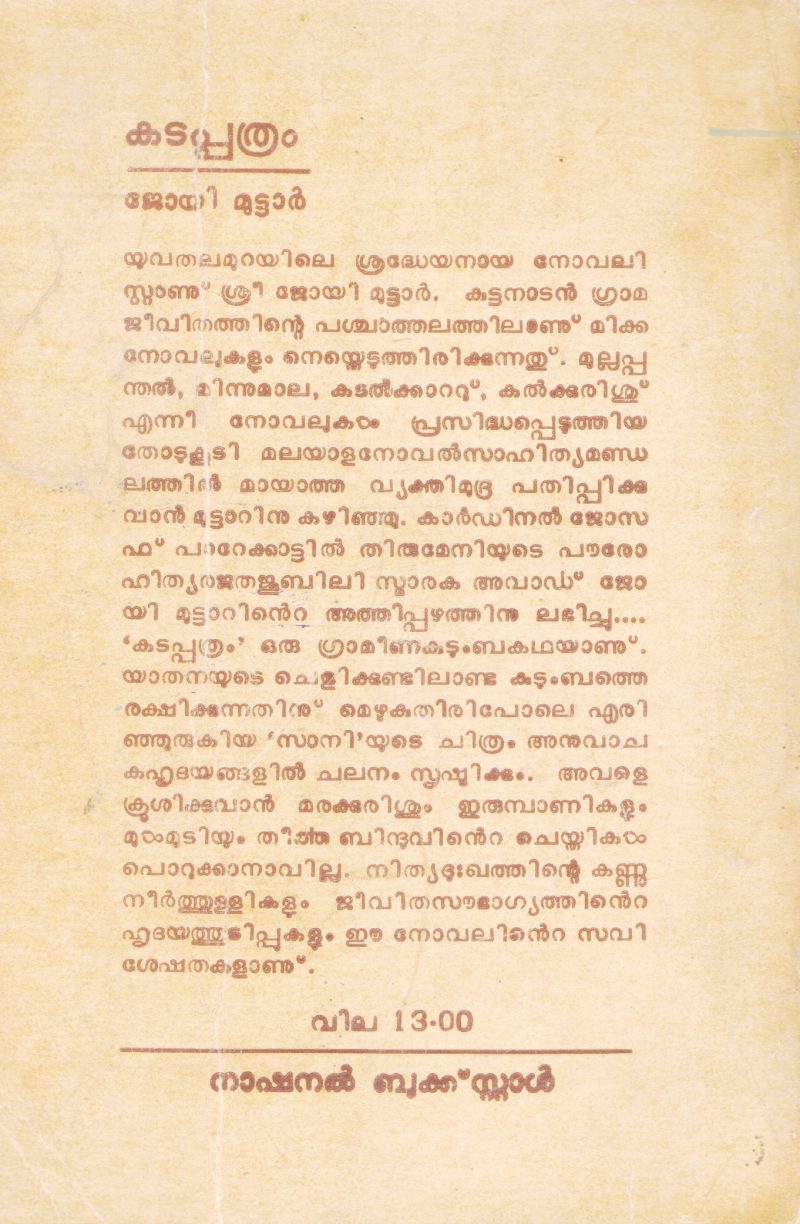 കടപ്പത്രം
ജോയി മുട്ടാർ
യുവതലമുറയിലെ ശ്രദ്ധേയനായ നോവലി
സ്റ്റാണു് ശ്രീ ജോയി മുട്ടാർ. കുട്ടനാടൻ ഗ്രാമ
ജീവിതത്തിന്റെ പശ്ചാത്തലത്തിലാണു് മിക്ക
നോവലുകളും നെയ്തെടുത്തിരിക്കുന്നതു്. മുല്ലപ്പ
ന്തൽ, മിന്നുമാല, കടൽക്കാററു്, കൽക്കുരിശു്
എന്നീ നോവലുകൾ പ്രസിദ്ധപ്പെടുത്തിയ
തോടുകൂടി മലയാളനോവൽസാഹിത്യമണ്ഡ
ലത്തിൽ മായാത്ത വ്യക്തിമുദ്ര പതിപ്പിക്കു
വാൻ മുട്ടാറിനു കഴിഞ്ഞു. കാർഡിനൽ ജോസ
ഫ് പാറേക്കാട്ടിൽ തിരുമേനിയുടെ പൗരോ
ഹിത്യരജതജൂബിലി സ്മാരക അവാഡ് ജോ
യി മുട്ടാറിൻെറ അത്തിപ്പഴത്തിനു ലഭിച്ചു....
‘കടപ്പത്രം’ ഒരു ഗ്രാമീണകുടുംബകഥയാണു്.
യാതനയുടെ ചെളിക്കുണ്ടിലാണ്ട കുടുംബത്തെ
രക്ഷിക്കുന്നതിനു് മെഴുകുതിരിപോലെ എരി
ഞ്ഞുരുകിയ ‘സാനി’യുടെ ചിത്രം അനുവാച
കഹൃദയങ്ങളിൽ ചലനം സൃഷ്ടിക്കും. അവളെ
ക്രൂശിക്കുവാൻ മരക്കുരിശും ഇരുമ്പാണികളും
മുൾമുടിയും തീർത്ത ബിന്ദുവിൻെറ ചെയ്തികൾ
പൊറുക്കാനാവില്ല. നിത്യദുഃഖത്തിന്റെ കണ്ണു
നീർത്തുള്ളികളും ജീവിതസൗഭാഗ്യത്തിൻെറ
ഹൃദയത്തുടിപ്പുകളും ഈ നോവലിൻെറ സവി
ശേഷതകളാണു്.
വില 13·00
നാഷനൽ ബുക്ക്സ്റ്റാൾ